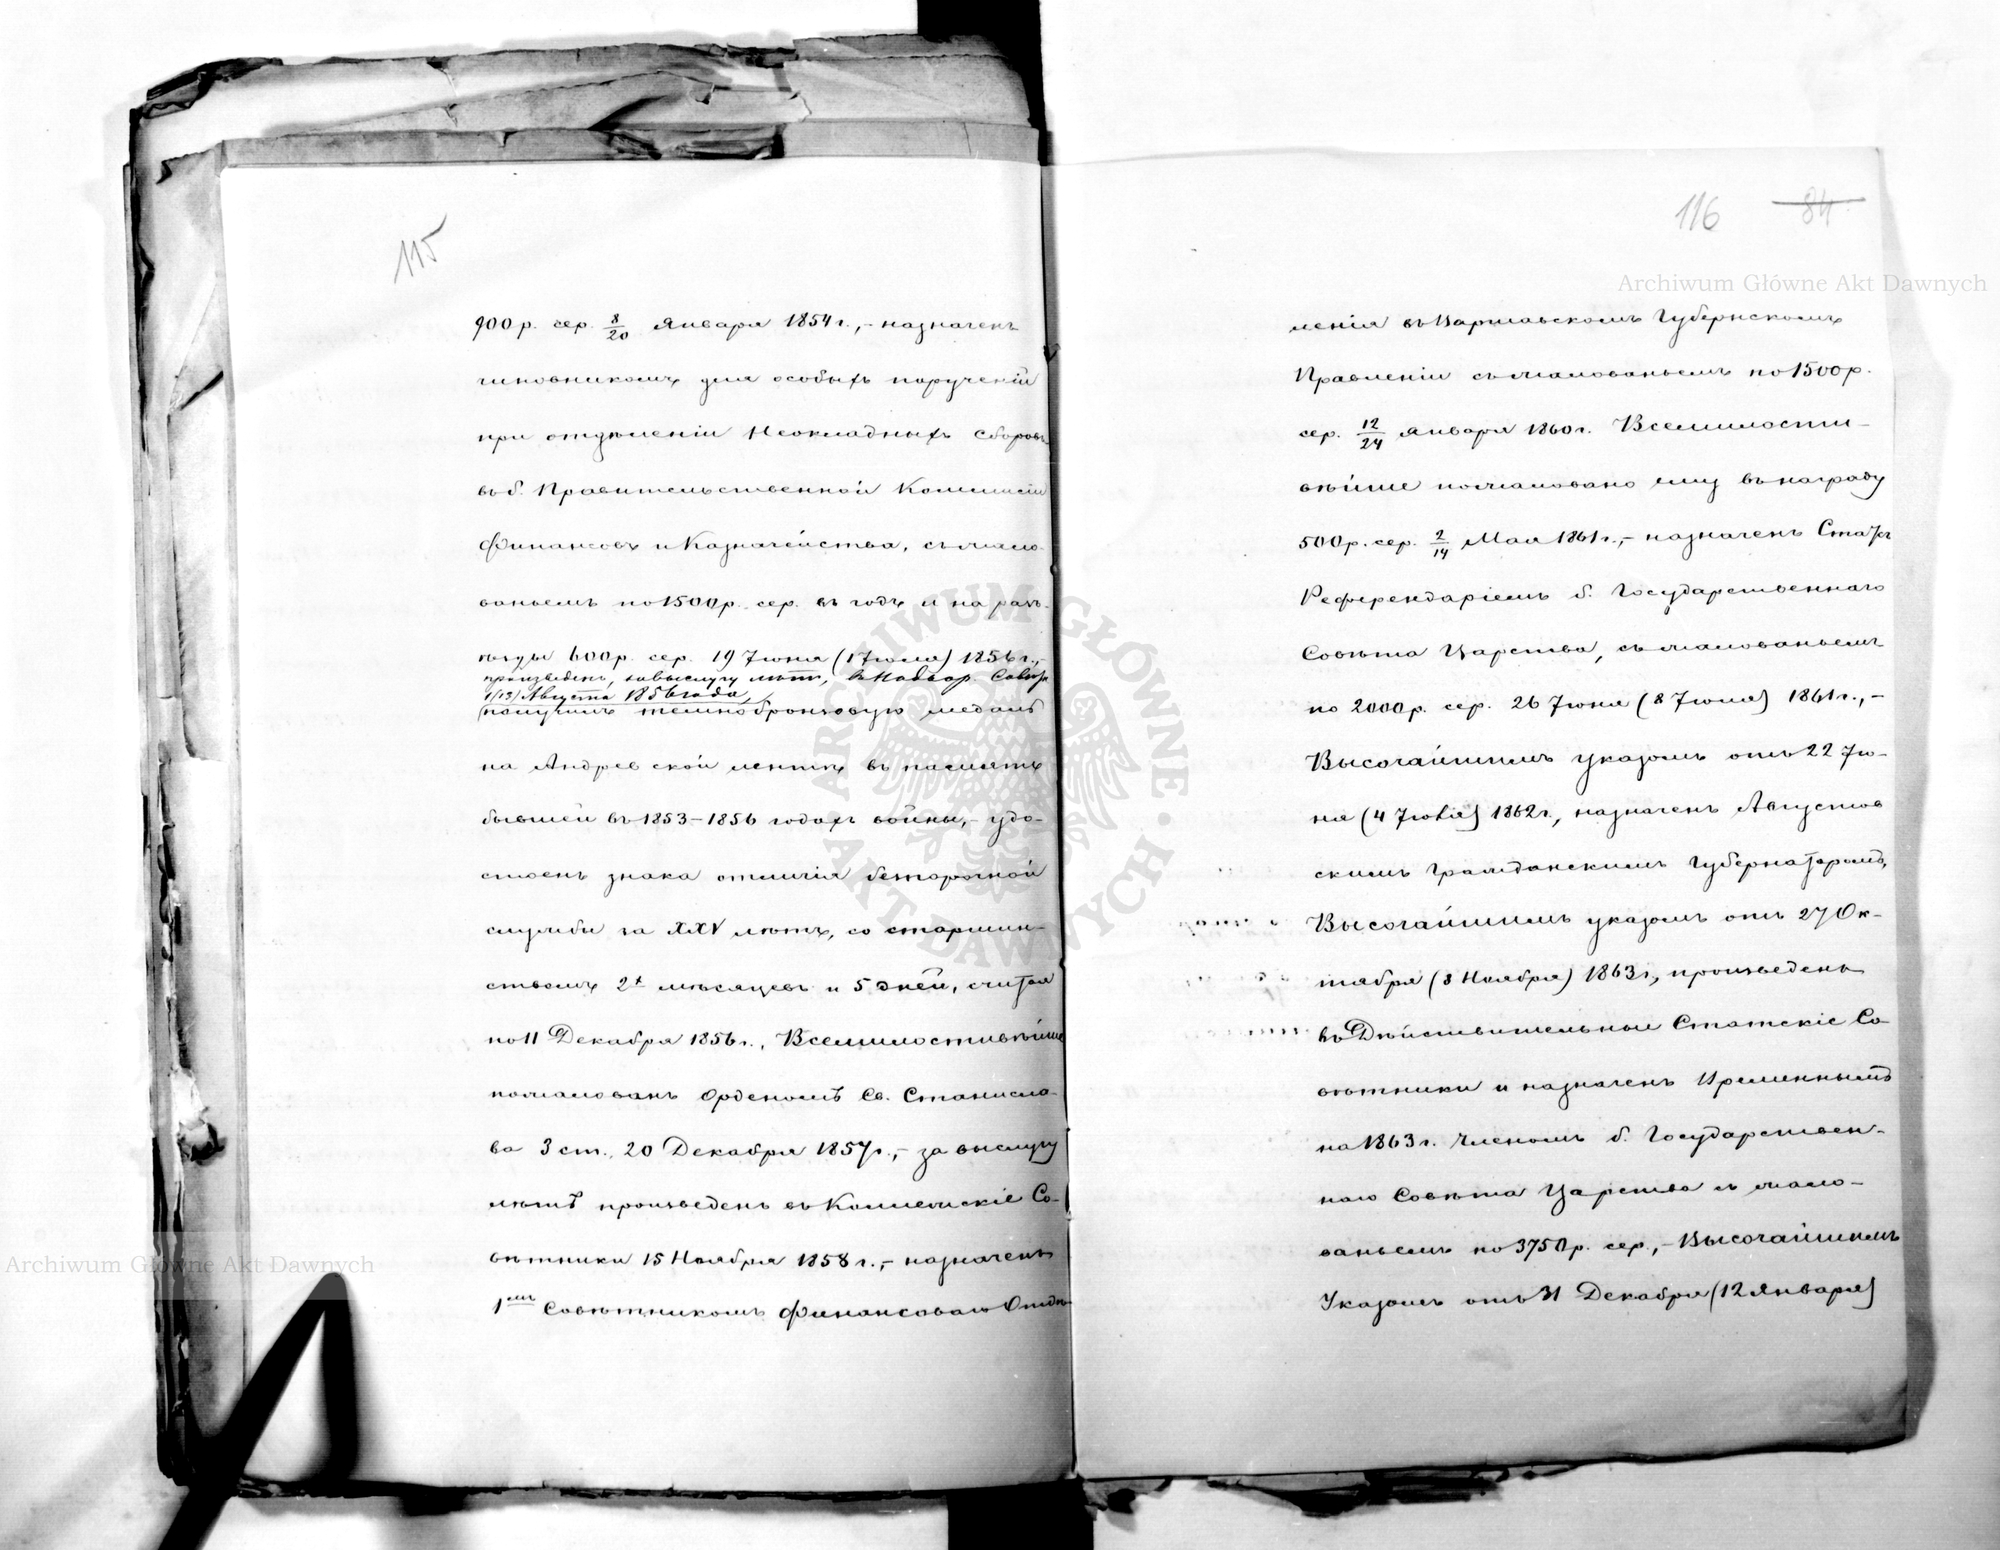 115
900 р. сер. 8/20 Января 1854 г.,- назначенъ
чиновникомъ для особыхъ порученій
при отдѣленіи Неокладныхъ Сборовъ
въ б. Правительственной Коммисіи
Финансовъ и Казначейства, съ жало-
ваньемъ по 1500 р. сер. въ годъ и на разъ-
ѣзды 600 р. сер. 19 Іюня (1 Іюля) 1856 г.,-
произведенъ, за выслугу лѣтъ, въ Надвор. Совѣт.
1/(13) Августа 1856 года,
получилъ темнобронзовую медаль
на Андреевской лентѣ въ память
бывшей въ 1853-1856 годахъ войны,- удо-
стоенъ знака отличія безпорочной
службы за XXV лѣтъ, со старшин-
ствомъ 2х мѣсяцевъ и 5 дней, считая
по 11 Декабря 1856 г., Всемилостивѣйше
пожалованъ Орденомъ Св. Станисла-
ва 3 ст. 20 Декабря 1857 г.,- за выслугу
лѣтъ произведенъ въ Коллежскіе Со-
вѣтники 15 Ноября 1858 г.,- назначенъ
1мъ Совѣтникомъ Финансоваго Отдѣ-
116 84
Archiwum Główne Akt Dawnych
ленія въ Варшавскомъ Губернскомъ
Правленіи съ жалованьемъ по 1500 р.
сер. 12/24 Января 1860 г. Всемилости-
вѣйше пожаловано ему въ награду
500 р. сер. 2/14 Мая 1861 г.,- назначенъ Статсъ
Референдаріемъ б. Государственнаго
Совѣта Царства, съ жалованьемъ
по 2000 р. сер. 26 Іюня (8 Іюля) 1861 г.,-
Высочайшимъ указомъ отъ 22 Ію-
ня (4 Іюля) 1862 г., назначенъ Августов
скимъ Гражданскимъ Губернаторомъ,
Высочайшимъ указомъ отъ 27 Ок-
тября (8 Ноября) 1863 г., произведенъ
въ Дѣйствительные Статскіе Со-
вѣтники и назначенъ Временнымъ
на 1863 г. Членомъ б. Государствен-
наго Совѣта Царства съ жало-
ваньемъ по 3750 р. сер.,- Высочайшимъ
Указомъ отъ 31 Декабря (12 Января)
ARCHIWUM GŁÓWNE · AKT DAWNYCH ·
Archiwum Główne Akt Dawnych